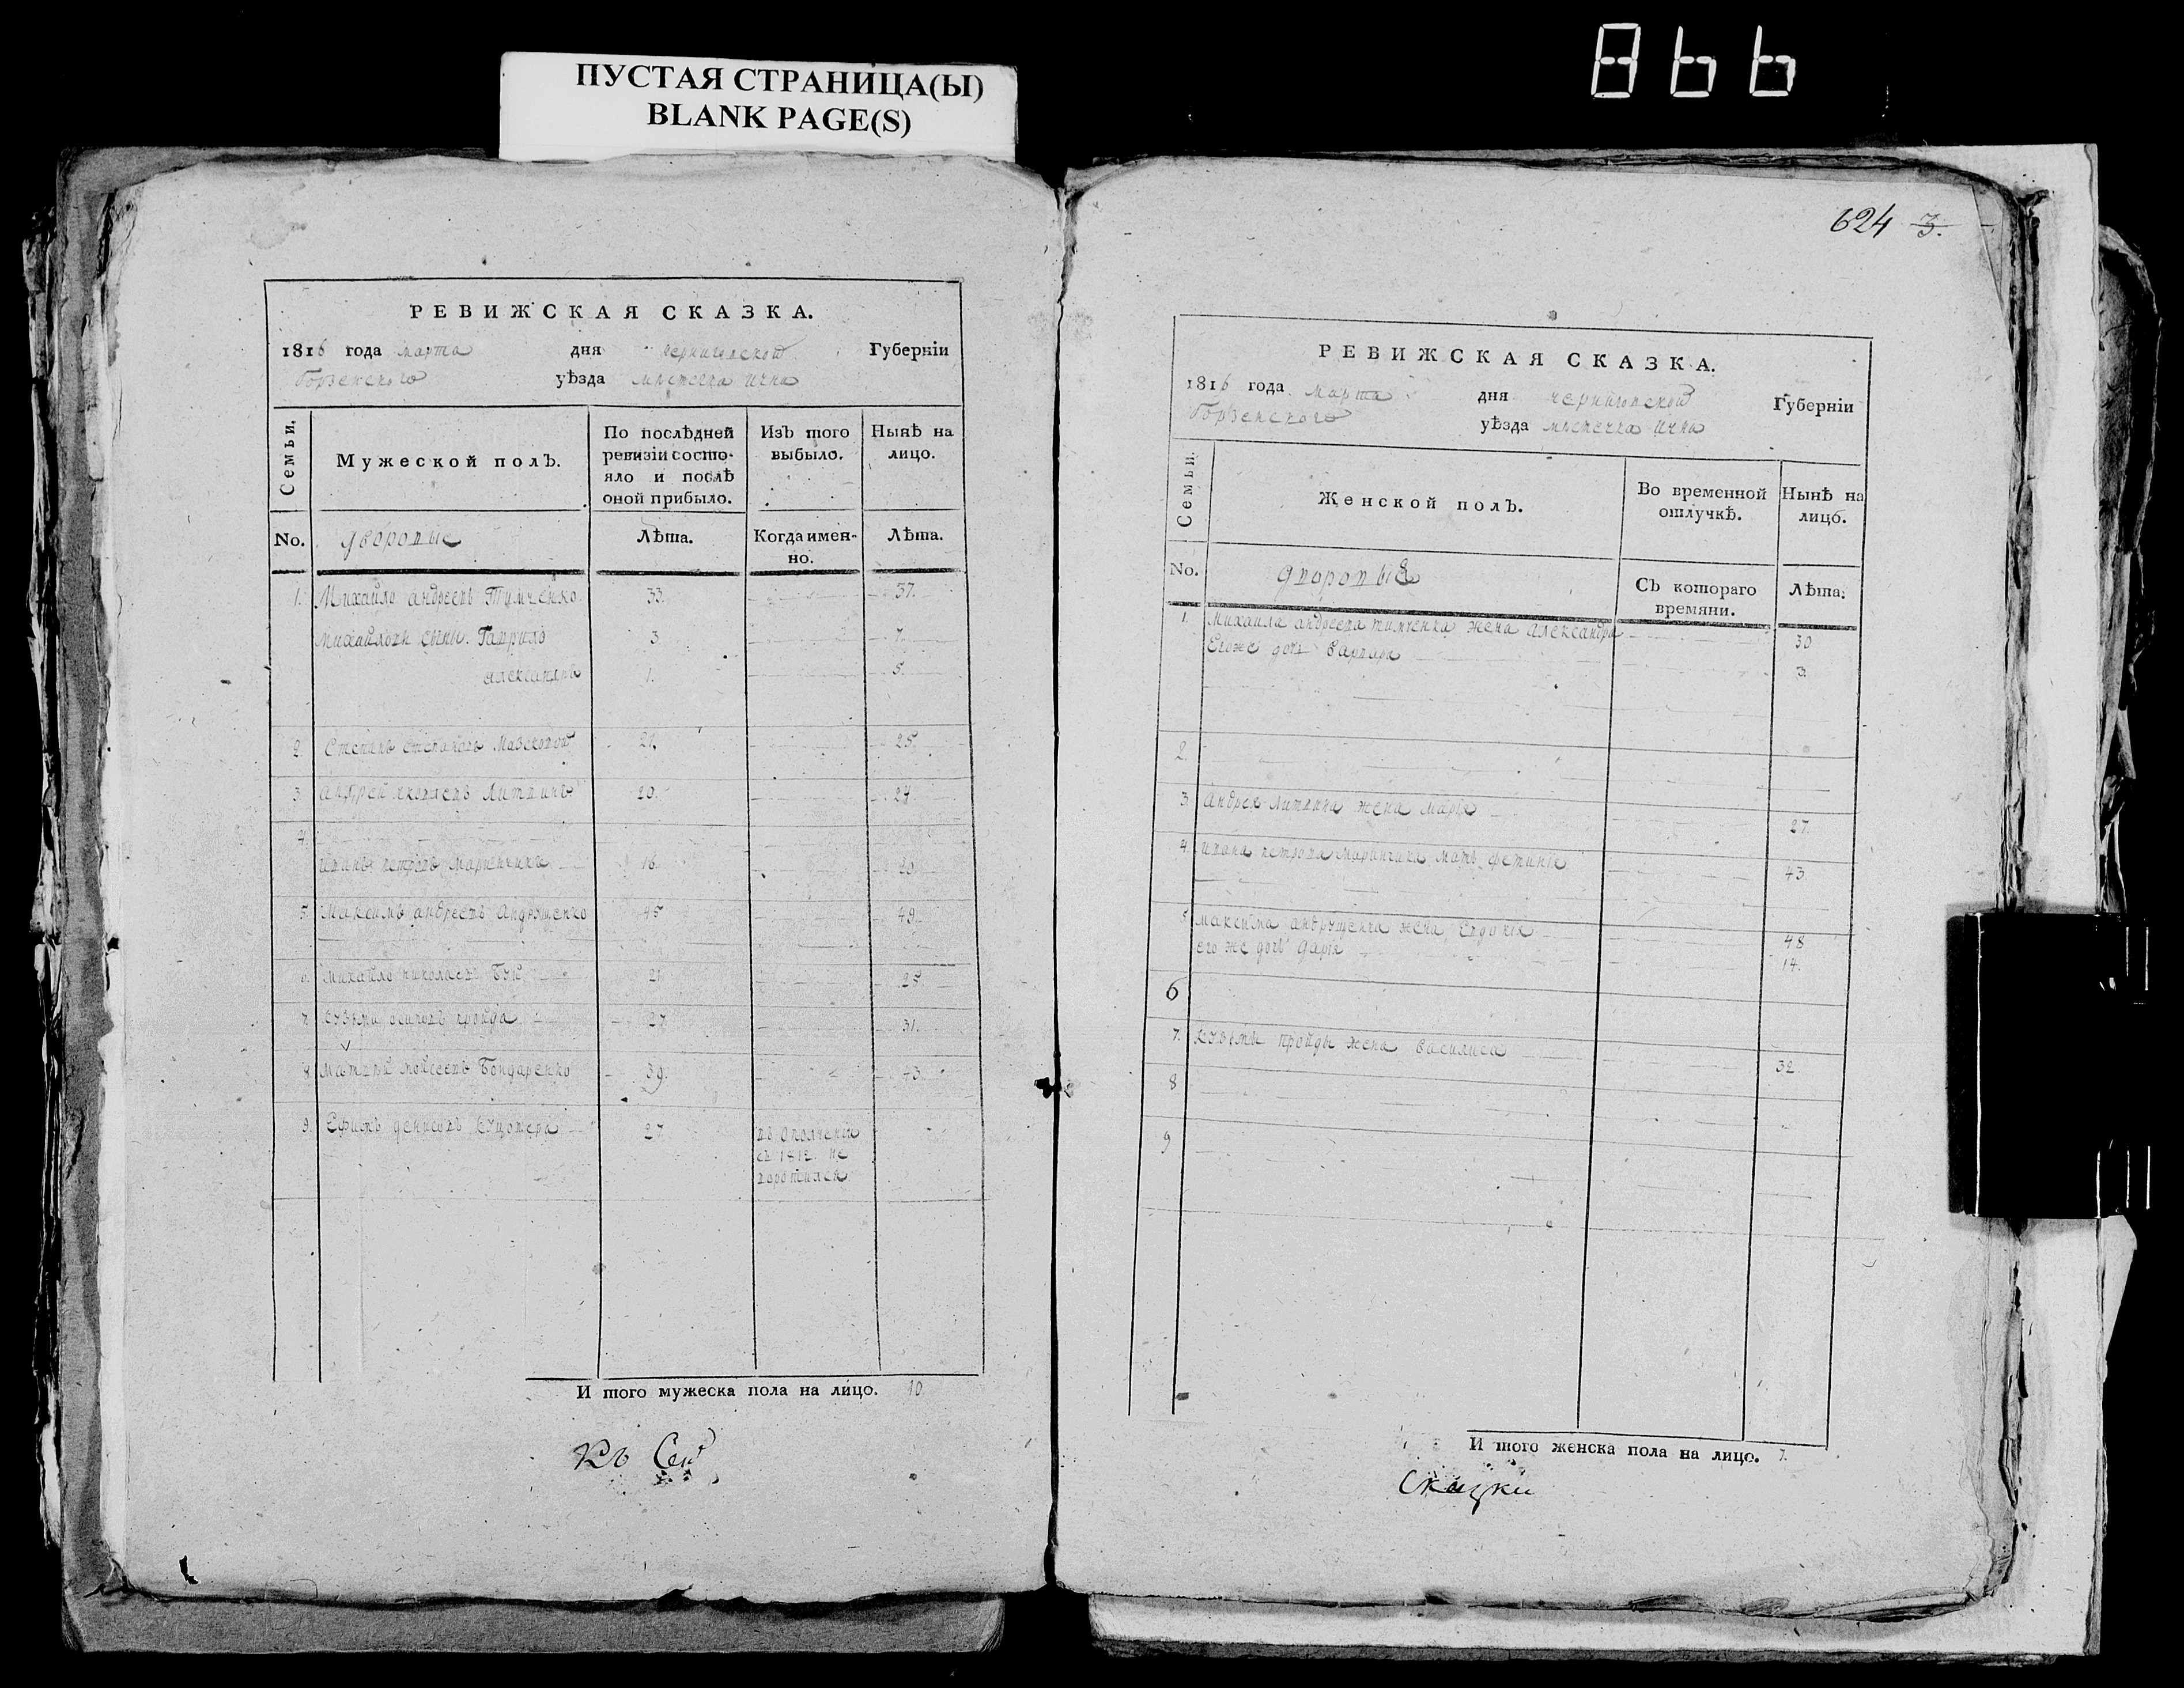 ПУСТАЯ СТРАНИЦА(Ы)
BLANK PAGE(S)
866
РЕВИЖСКАЯ СКАЗКА.
1816 года марта дня черниговской Губерніи
Борзенского уѣзда мистечка Ична
Семьи.
Мужеской полъ.
По послѣдней ревизіи состояло и послѣ оной прибыло.
Изъ того выбыло.
Нынѣ на лицо.
No. дворовые Лѣта. Когда именно. Лѣта.
1. Михайло андреевъ Тимченко 33. 37.
Михайловы сыны. Гаврило 3 7.
александръ 1. 5.
2 Степанъ степановъ 21. 25.
3 андрей яковлевъ Литвинъ 20. 24
4.
иванъ петровъ Маринчикъ 16. 20
5 Максимъ андреевъ Андрущенко 45 49.
6. Михайло николаевъ 21 25.
7. Кузьма осиповъ пройда 27 31.
8 Матвѣй моисеевъ Бондаренко 39. 43.
9. Ефимъ денисовъ 27. въ ополченіи
съ 1812 не
воротился
И того мужеска пола на лицо. 10
Къ Сей
624 3.
РЕВИЖСКАЯ СКАЗКА.
1816 года марта дня черниговской Губерніи
Борзенского уѣзда мистечка Ична
Семьи.
Женской полъ.
Во временной отлучкѣ.
Нынѣ на лицо.
No. дворовые Съ котораго времяни. Лѣта.
1. Михайла андреева тимченка жена александра 30
Егоже дочь варвара 3
2.
3. андрея литвина жена марія 27.
4. ивана петрова маринчика мать фетинія 43
5 максима андрущенка жена евдокія 48
его же дочь дарія 14.
6
7. кузьмы пройды жена василиса 32
8
9
И того женска пола на лицо. 7.
Сказки